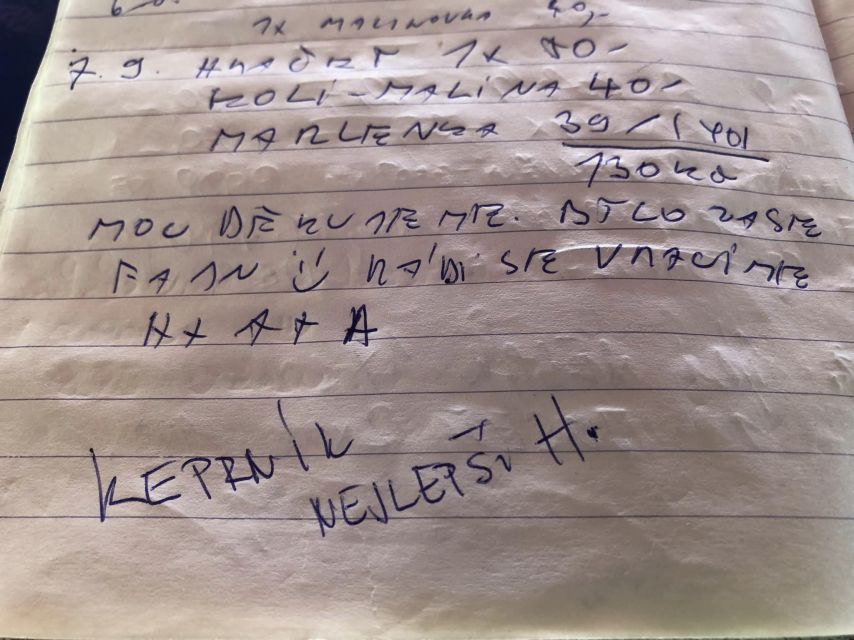 1x MALINOVKA 40,-
7. 9. 1x 50-
KOLI-MALINA 40,-
MARLENKA 39/1
130 Kč
MOC DĚKUJEME. BYLO ZASE
FAJN RÁDI SE VRACÍME
H + A + A
KEPRNÍK
NEJLEPŠÍ H.